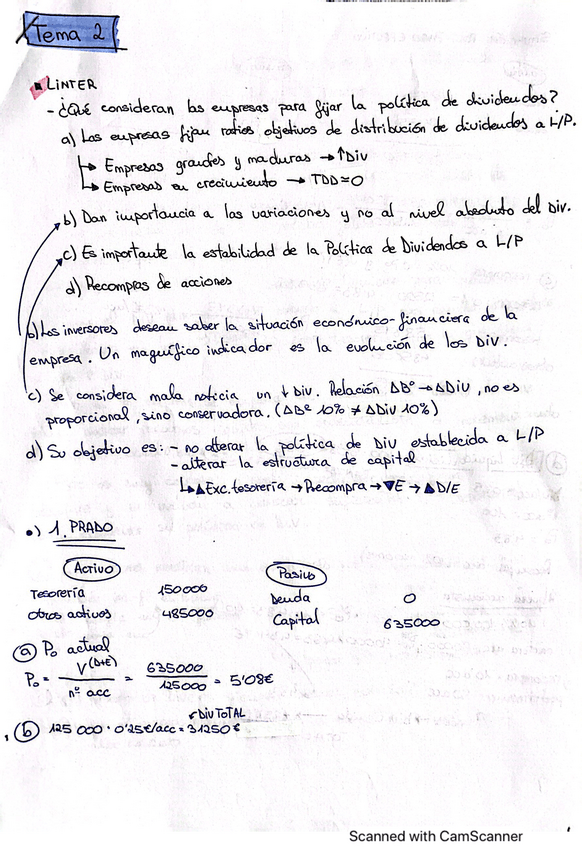 Tema 2
LINTER
- ¿Qué consideran las empresas para fijar la política de dividendos?
a) Las empresas fijan ratios objetivos de distribución de dividendos a L/P.
↳ Empresas grandes y maduras → ↑Div
↳ Empresas en crecimiento → TDD=0
b) Dan importancia a las variaciones y no al nivel absoluto del Div.
c) Es importante la estabilidad de la Política de Dividendos a L/P
d) Recompras de acciones
b) Los inversores desean saber la situación económico-financiera de la
empresa. Un magnífico indicador es la evolución de los Div.
c) Se considera mala noticia un ↓ Div. Relación ΔBº → ΔDiv, no es
proporcional, sino conservadora. (ΔBº 10% ≠ ΔDiv 10%)
d) Su objetivo es: - no alterar la política de Div establecida a L/P
- alterar la estructura de capital
↳▲Exc. tesorería → Recompra → ▼E → ▲D/E
•) 1. PRADO
Activo Pasivo
Tesorería 150000 Deuda 0
Otros activos 485000 Capital 635000
a) P₀ actual
P₀ = V(D+E) / nº acc = 635000 / 125000 = 5'08€
DIV TOTAL
b) 125 000 · 0'25€/acc = 31250 €
Scanned with CamScanner